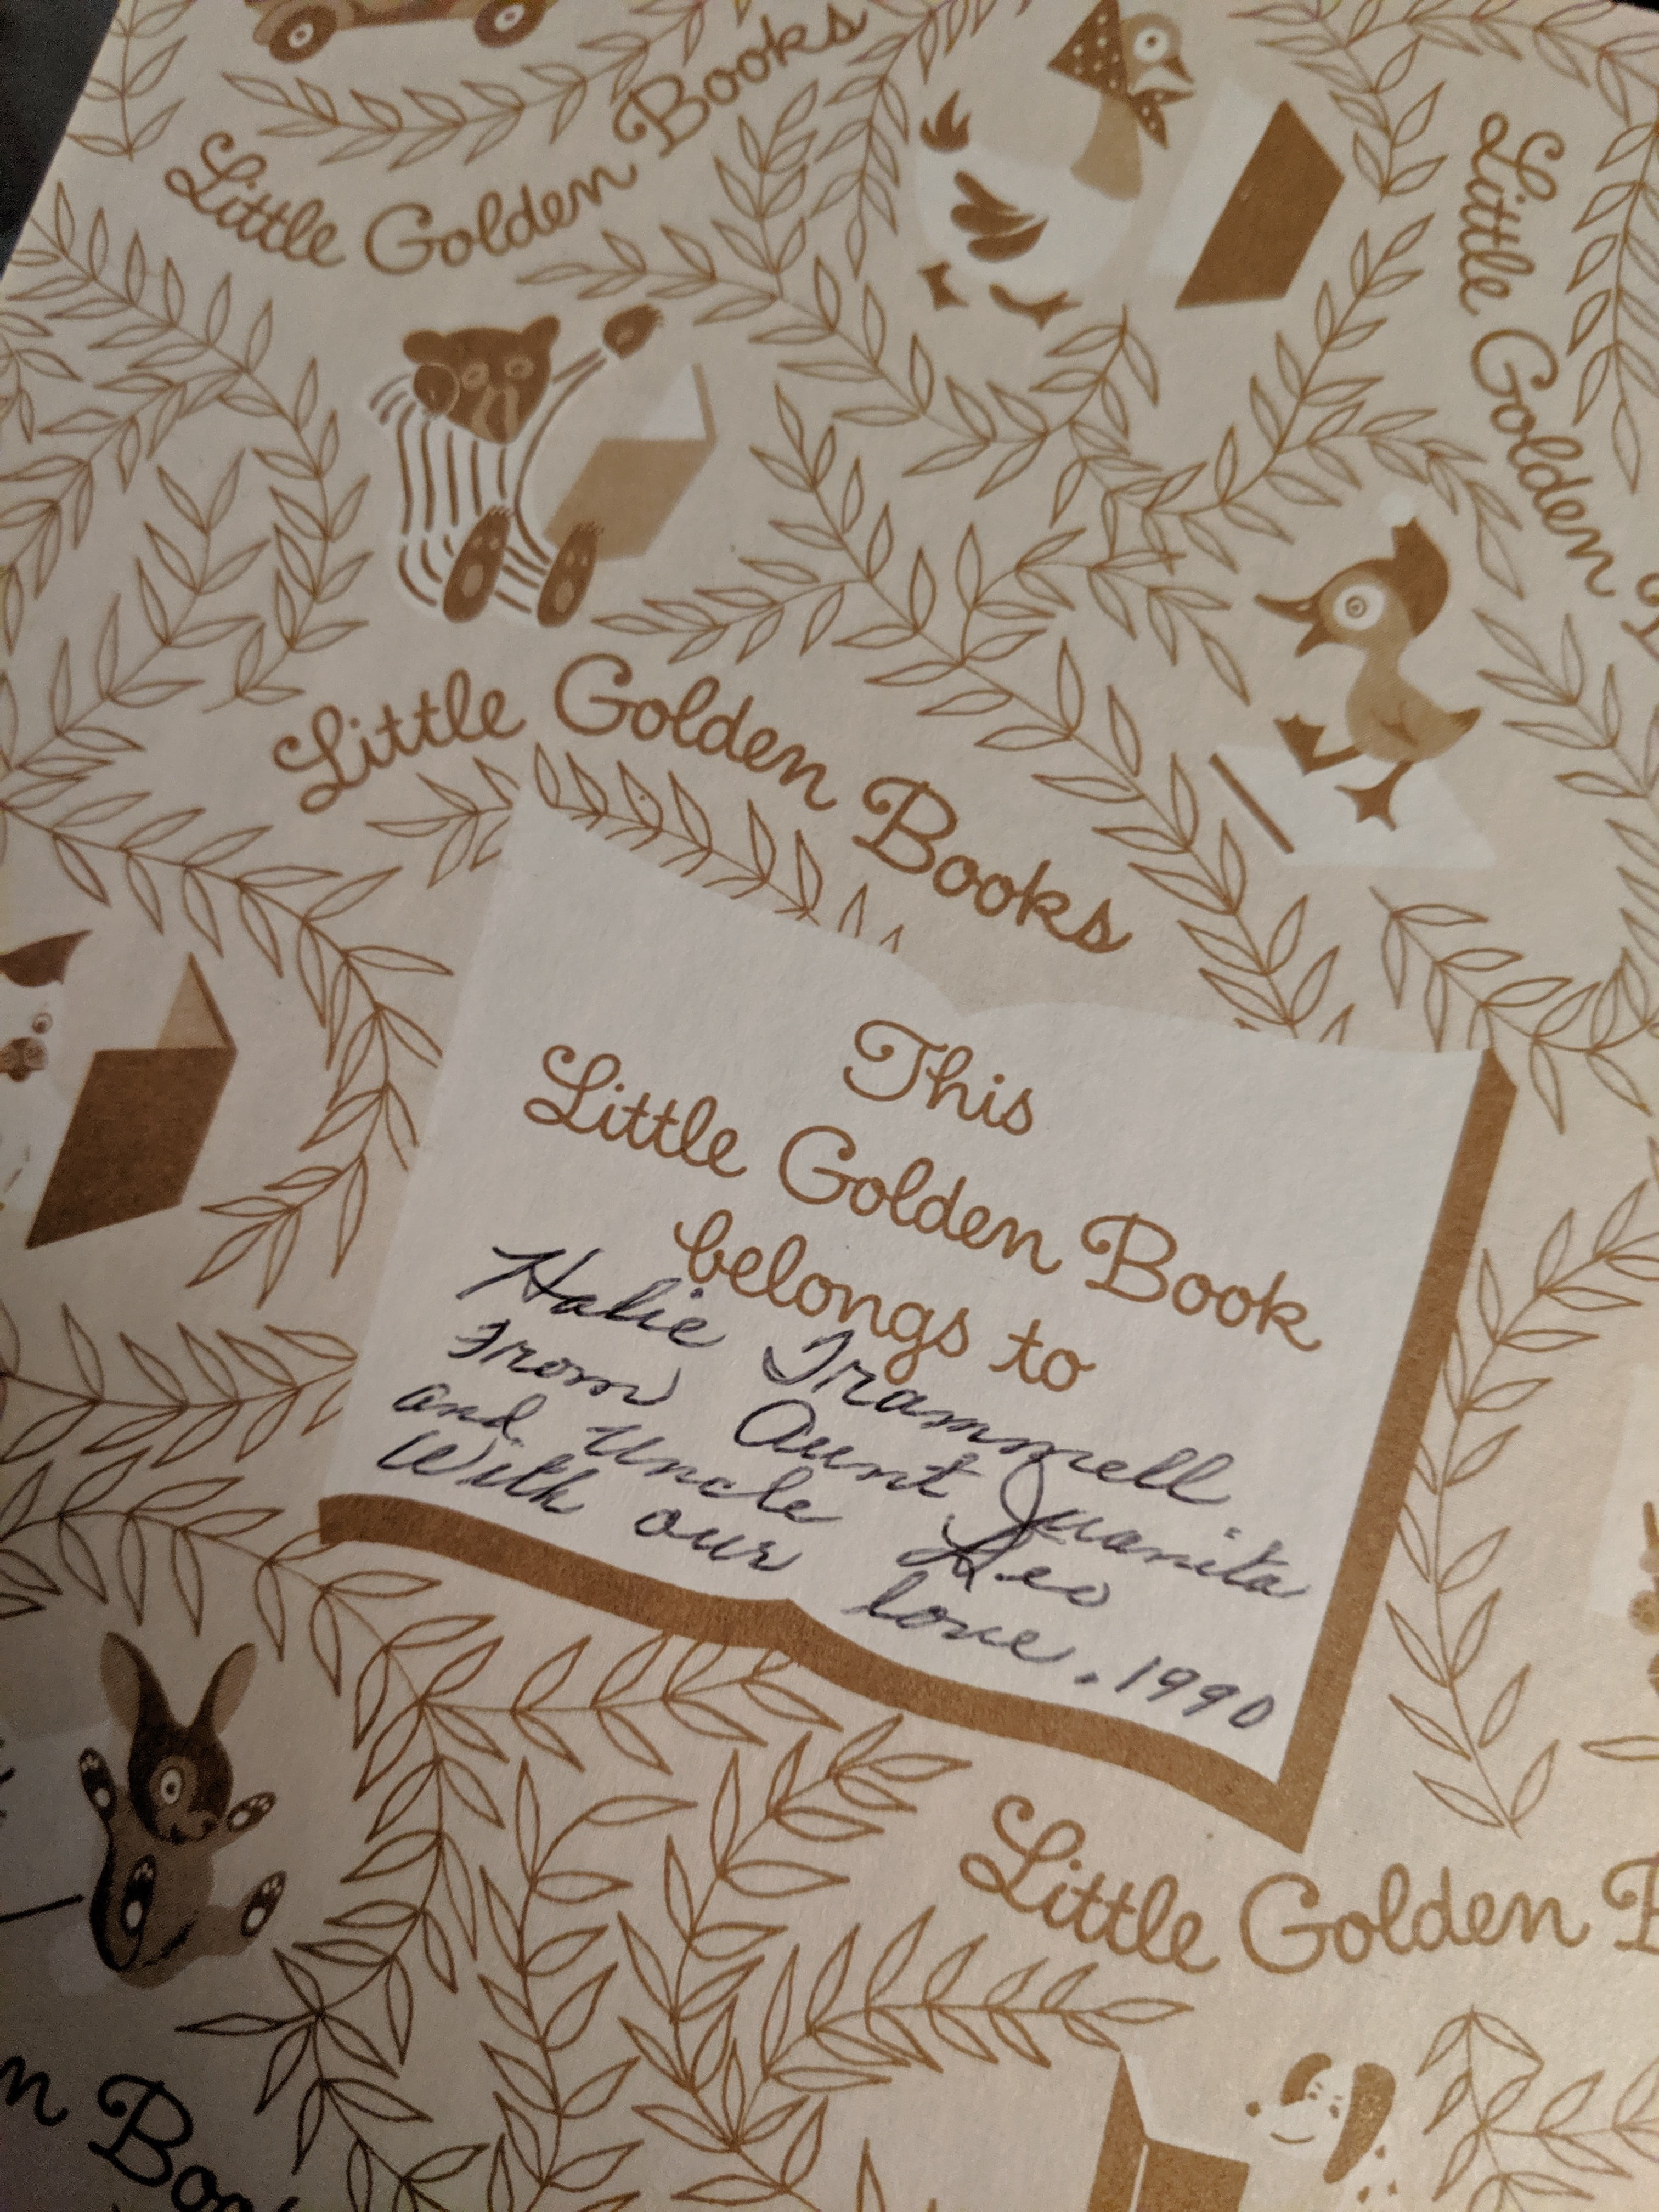 Little Golden Books
Little Golden
Little Golden Books
This
Little Golden Book
belongs to
Halie Trammell
From Aunt Juanita
and Uncle Leo
With our love. 1990
Little Golden B
n Boo